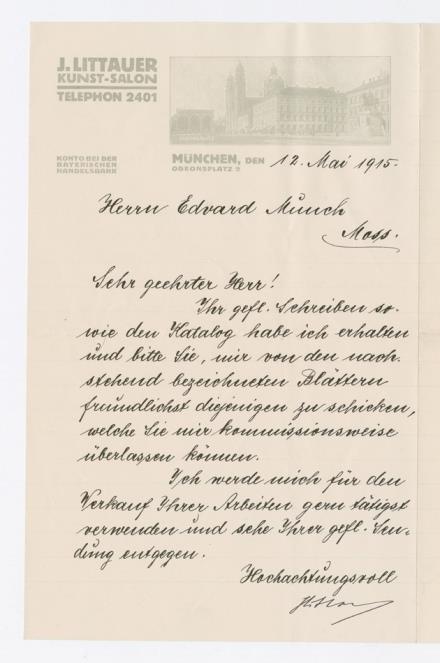 J. LITTAUER
KUNST-SALON
TELEPHON 2401
KONTO BEI DER
BAYERISCHEN
HANDELSBANK
MÜNCHEN, DEN 12. Mai 1915.
ODEONSPLATZ 2
Herrn Edvard Munch
Moss.
Sehr geehrter Herr!
Ihr gefl. Schreiben so-
wie den Katalog habe ich erhalten
und bitte Sie, mir von den nach-
stehend bezeichneten Blättern
freundlichst diejenigen zu schicken,
welche Sie mir kommissionsweise
überlassen können.
Ich werde mich für den
Verkauf Ihrer Arbeiten gern tätigst
verwenden und sehe Ihrer gefl. Sen-
dung entgegen.
Hochachtungsvoll